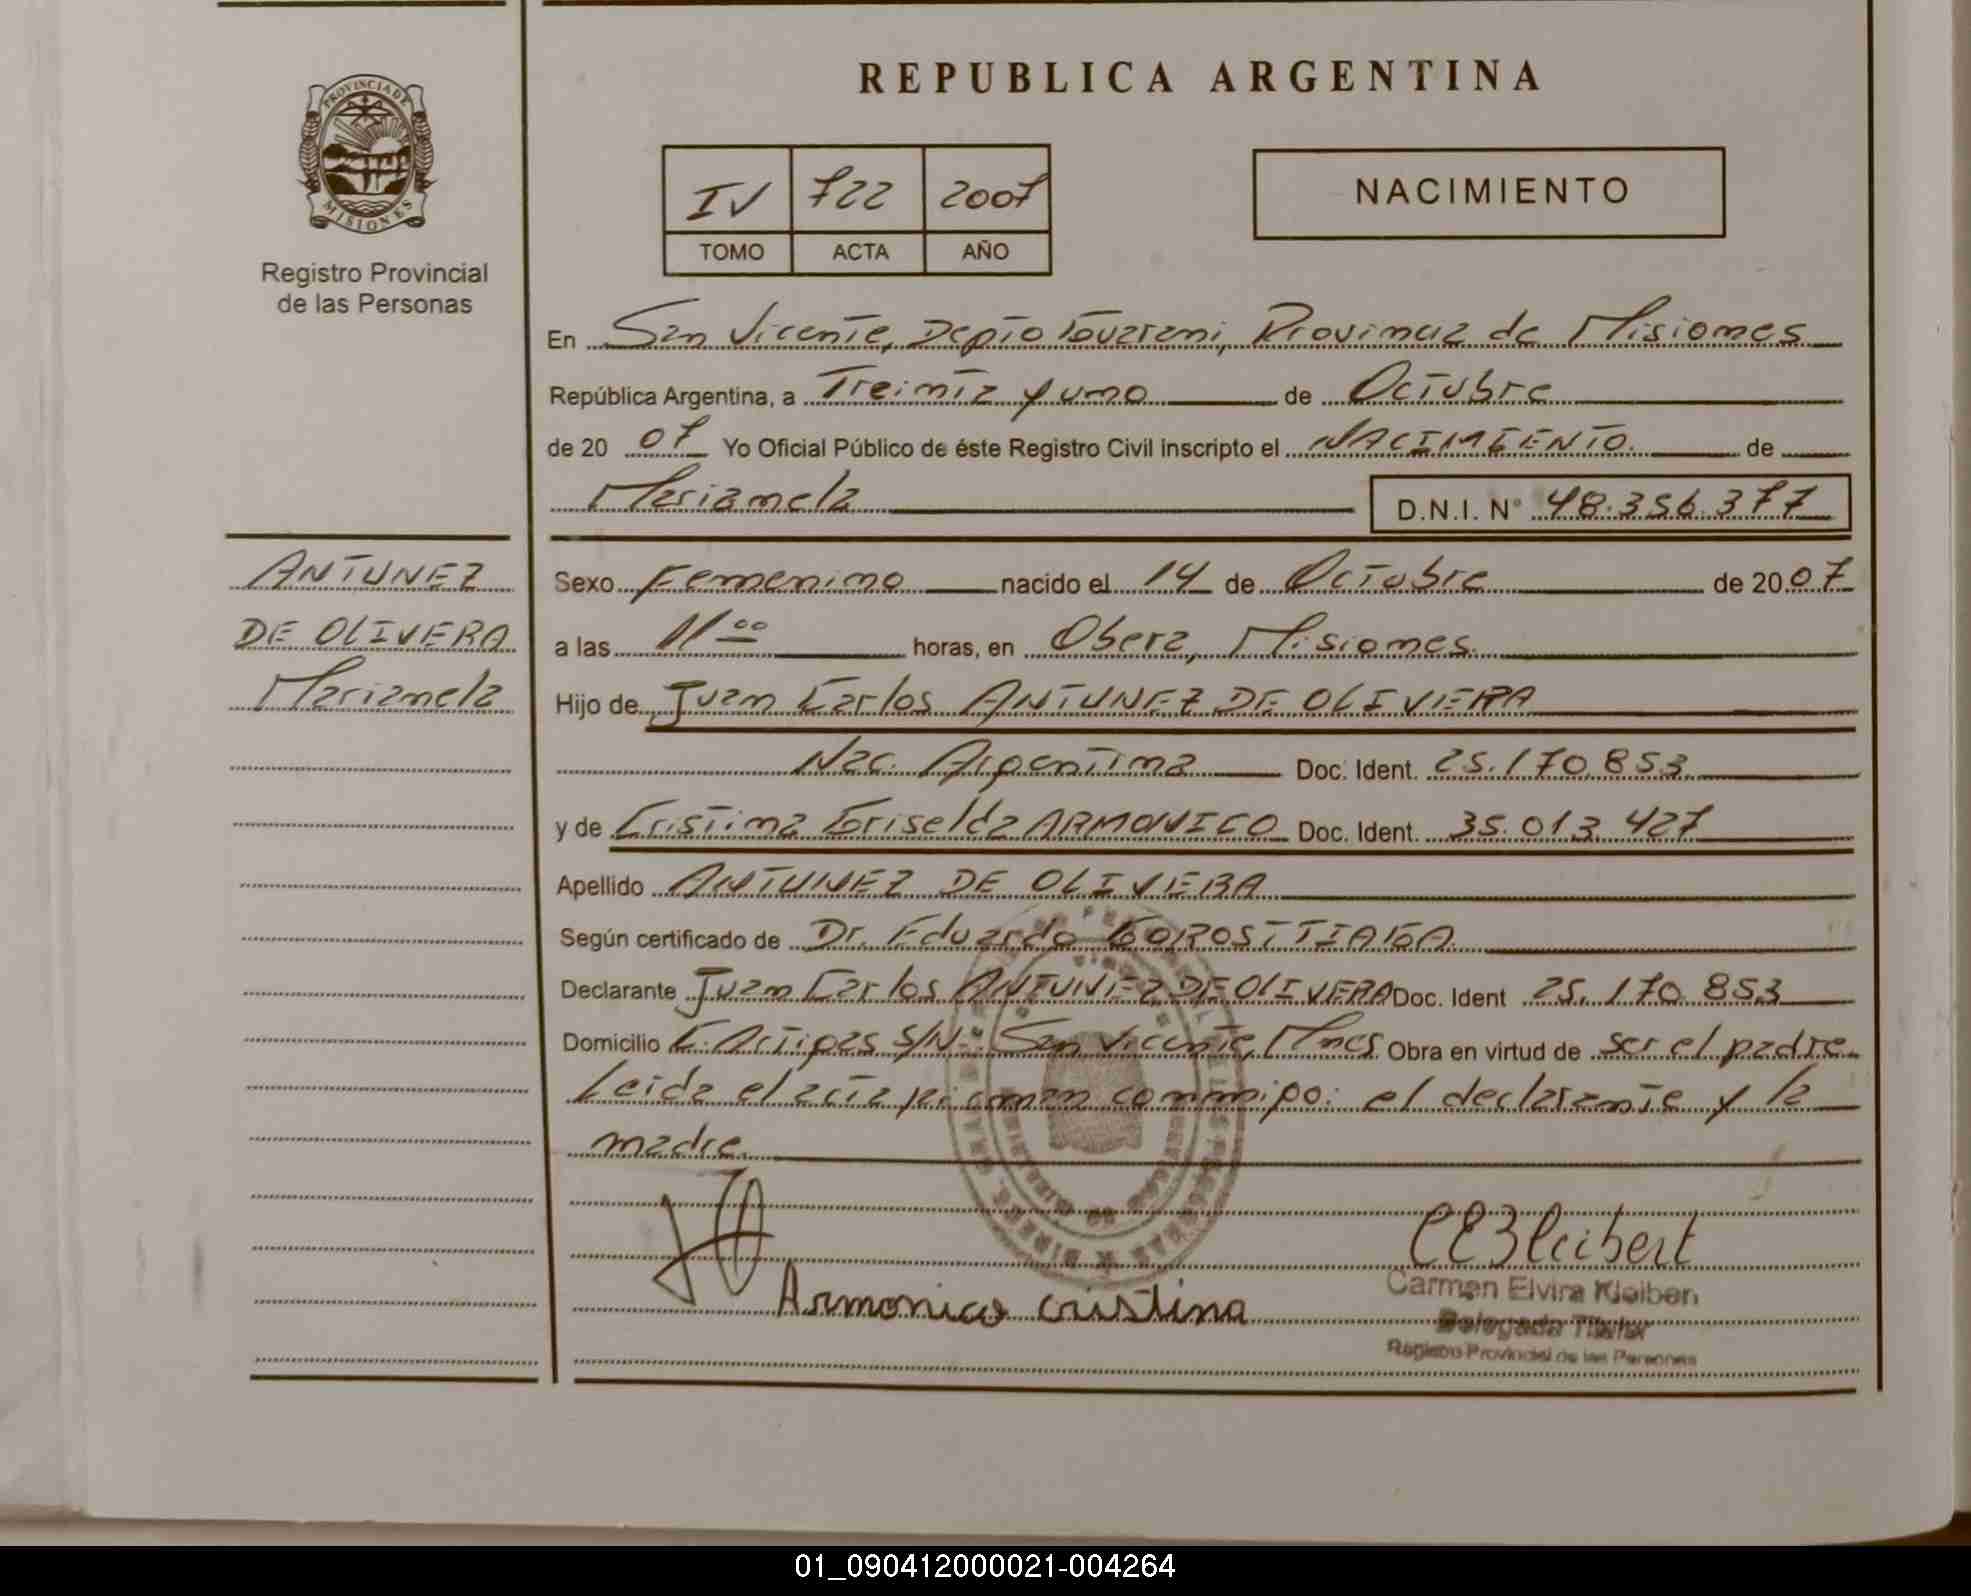 REPUBLICA ARGENTINA
PROVINCIA DE MISIONES
Registro Provincial
de las Personas
IV 722 2007
TOMO ACTA AÑO
NACIMIENTO
En San Vicente, Depto Guarani, Provincia de Misiones
República Argentina, a Treinta y uno de Octubre
de 2007 Yo Oficial Público de éste Registro Civil inscripto el NACIMIENTO de
Marianela D.N.I. N° 48.356.377
ANTUNEZ
DE OLIVERA
Marianela
Sexo Femenino nacido el 14 de Octubre de 2007
a las 11 00 horas, en Obera, Misiones
Hijo de Juan Carlos ANTUNEZ DE OLIVERA
Nac. Argentina Doc. Ident. 25.170.853
y de Cristina Griselda ARMONICO Doc. Ident. 35.013.427
Apellido ANTUNEZ DE OLIVERA
Según certificado de Dr. Eduardo GOROSTTIAGA
Declarante Juan Carlos ANTUNEZ DE OLIVERA Doc. Ident 25.170.853
Domicilio C. Artigas S/N- San Vicente, Mnes Obra en virtud de ser el padre
Leida el acta firman conmigo: el declarante y la
madre.
Armonico Cristina
CEKleibert
Carmen Elvira Kleibert
Delegada Titular
Registro Provincial de las Personas
01_090412000021-004264